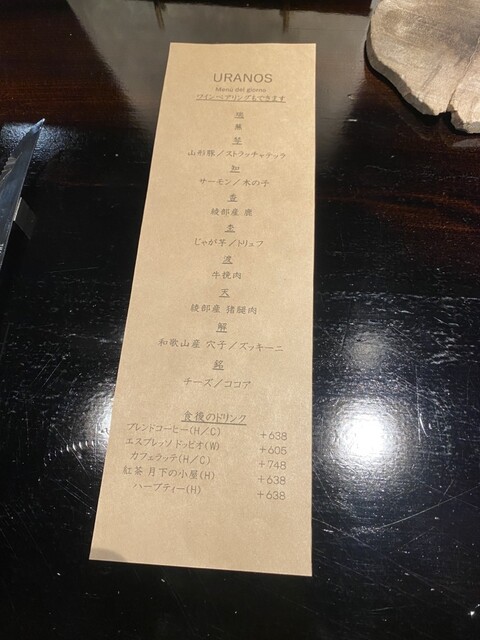 URANOS
Menu del giorno
ワインペアリングもできます
山形豚/ストラッチャテッラ
知
サーモン/木の子
香
綾部産 鹿
杢
じゃが芋/トリュフ
渡
牛挽肉
天
綾部産 猪腿肉
解
和歌山産 穴子/ズッキーニ
銘
チーズ/ココア
食後のドリンク
ブレンドコーヒー(H/C) +638
エスプレッソ ドッピオ(W) +605
カフェラッテ(H/C) +748
紅茶 月下の小屋(H) +638
ハーブティー(H) +638